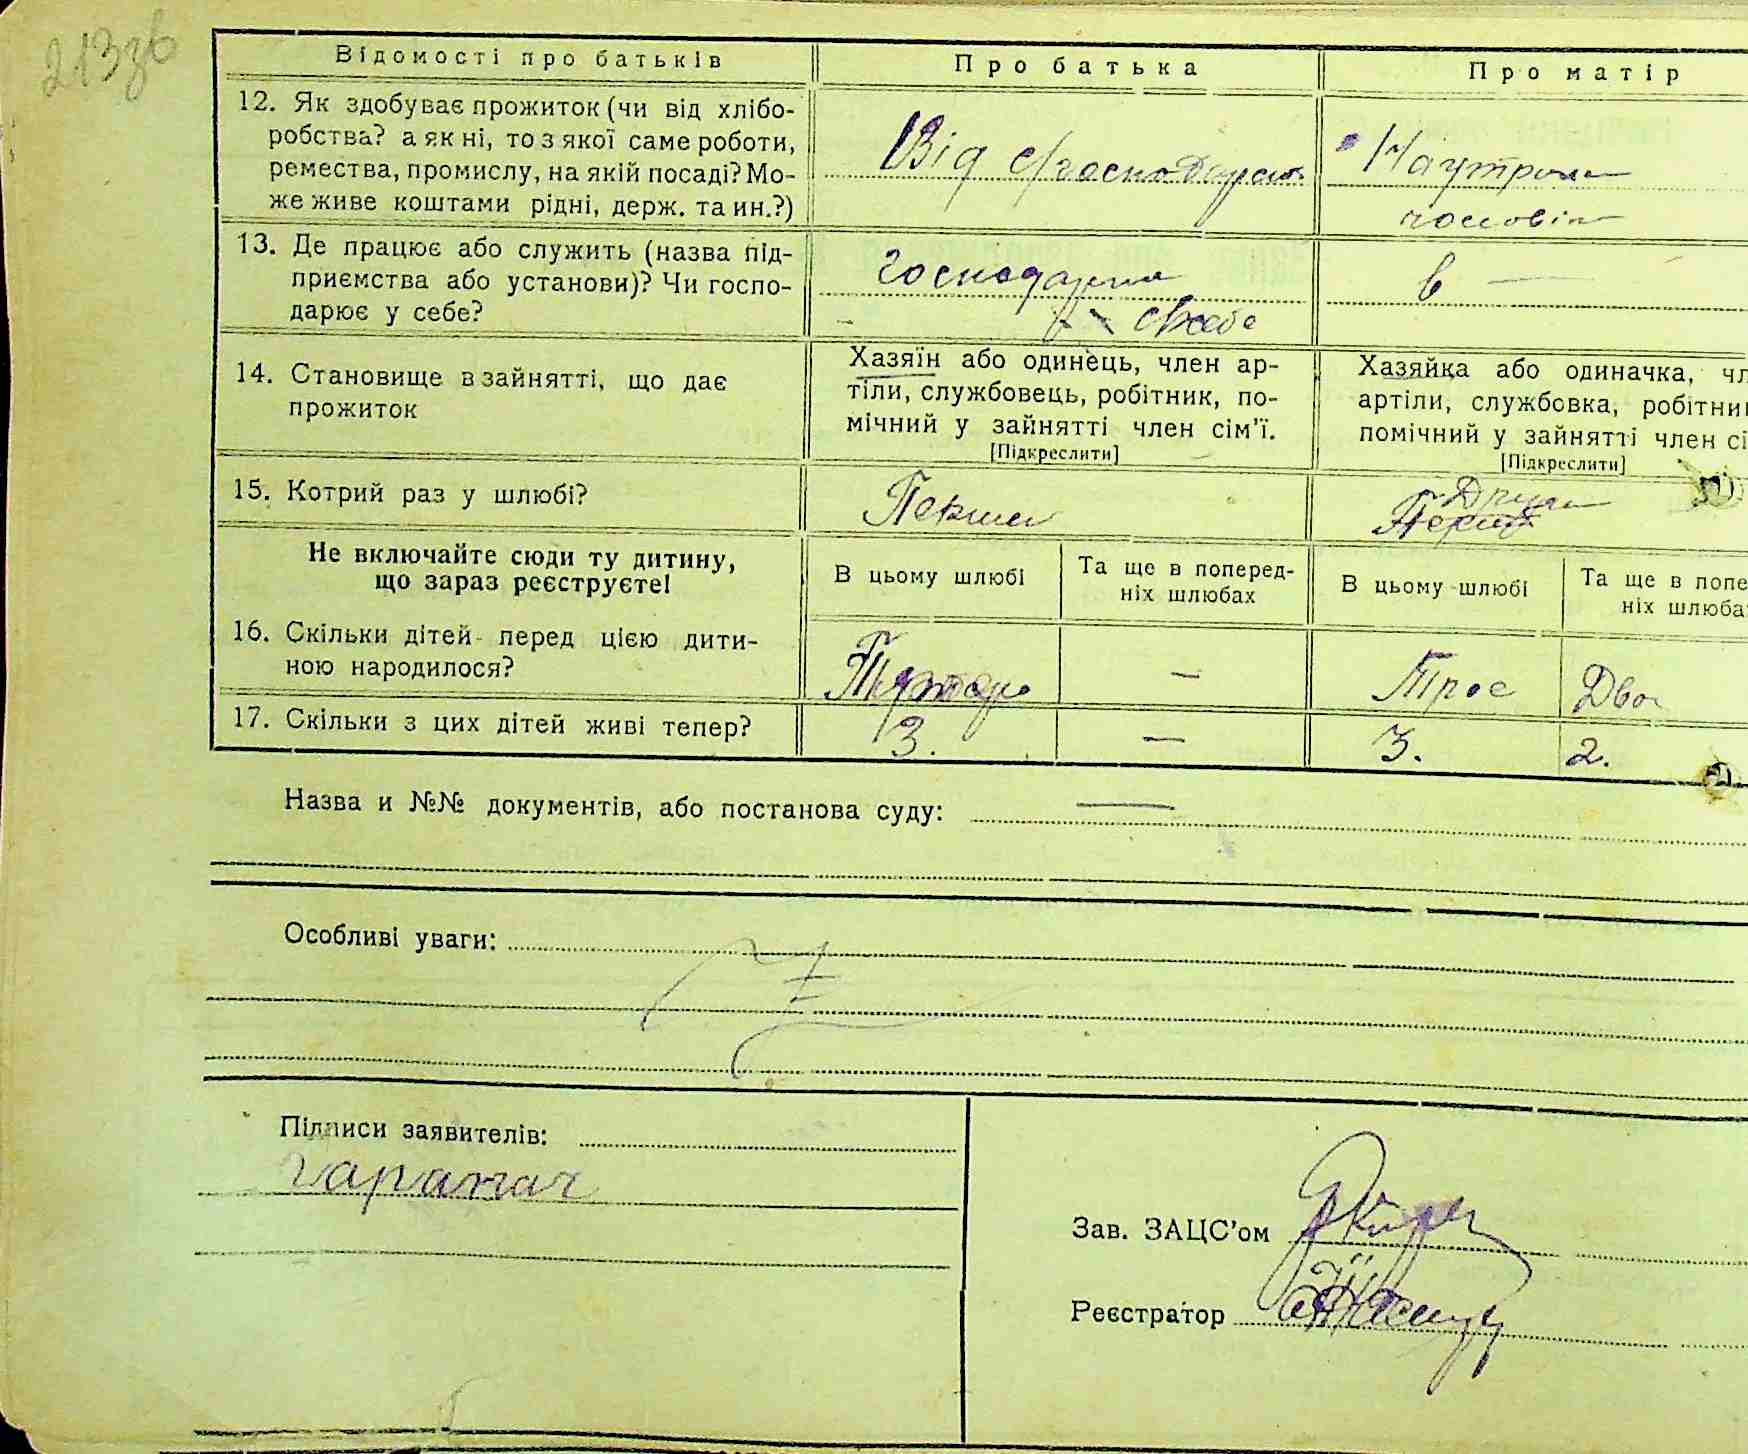 213зв
Відомості про батьків
Про батька
Про матір
12. Як здобуває прожиток (чи від хлібо-
робства? а як ні, то з якої саме роботи,
ремества, промислу, на якій посаді? Мо-
же живе коштами рідні, держ. та ин.?)
Від
13. Де працює або служить (назва під-
приємства або установи)? Чи госпо-
дарює у себе?
в —
14. Становище в зайнятті, що дає
прожиток
Хазяїн або одинець, член ар-
тіли, службовець, робітник, по-
мічний у зайнятті член сім'ї.
[Підкреслити]
Хазяйка або одиначка, чл
артіли, службовка, робітни
помічний у зайнятті член сі
[Підкреслити]
15. Котрий раз у шлюбі?
Не включайте сюди ту дитину,
що зараз реєструєте!
В цьому шлюбі
Та ще в поперед-
ніх шлюбах
В цьому шлюбі
Та ще в попе
ніх шлюба
16. Скільки дітей перед цією дити-
ною народилося?
—
Троє
Двоє
17. Скільки з цих дітей живі тепер?
3.
—
3.
2.
Назва и №№ документів, або постанова суду: —
Особливі уваги:
Підписи заявителів:
Зав. ЗАЦС'ом
Реєстратор